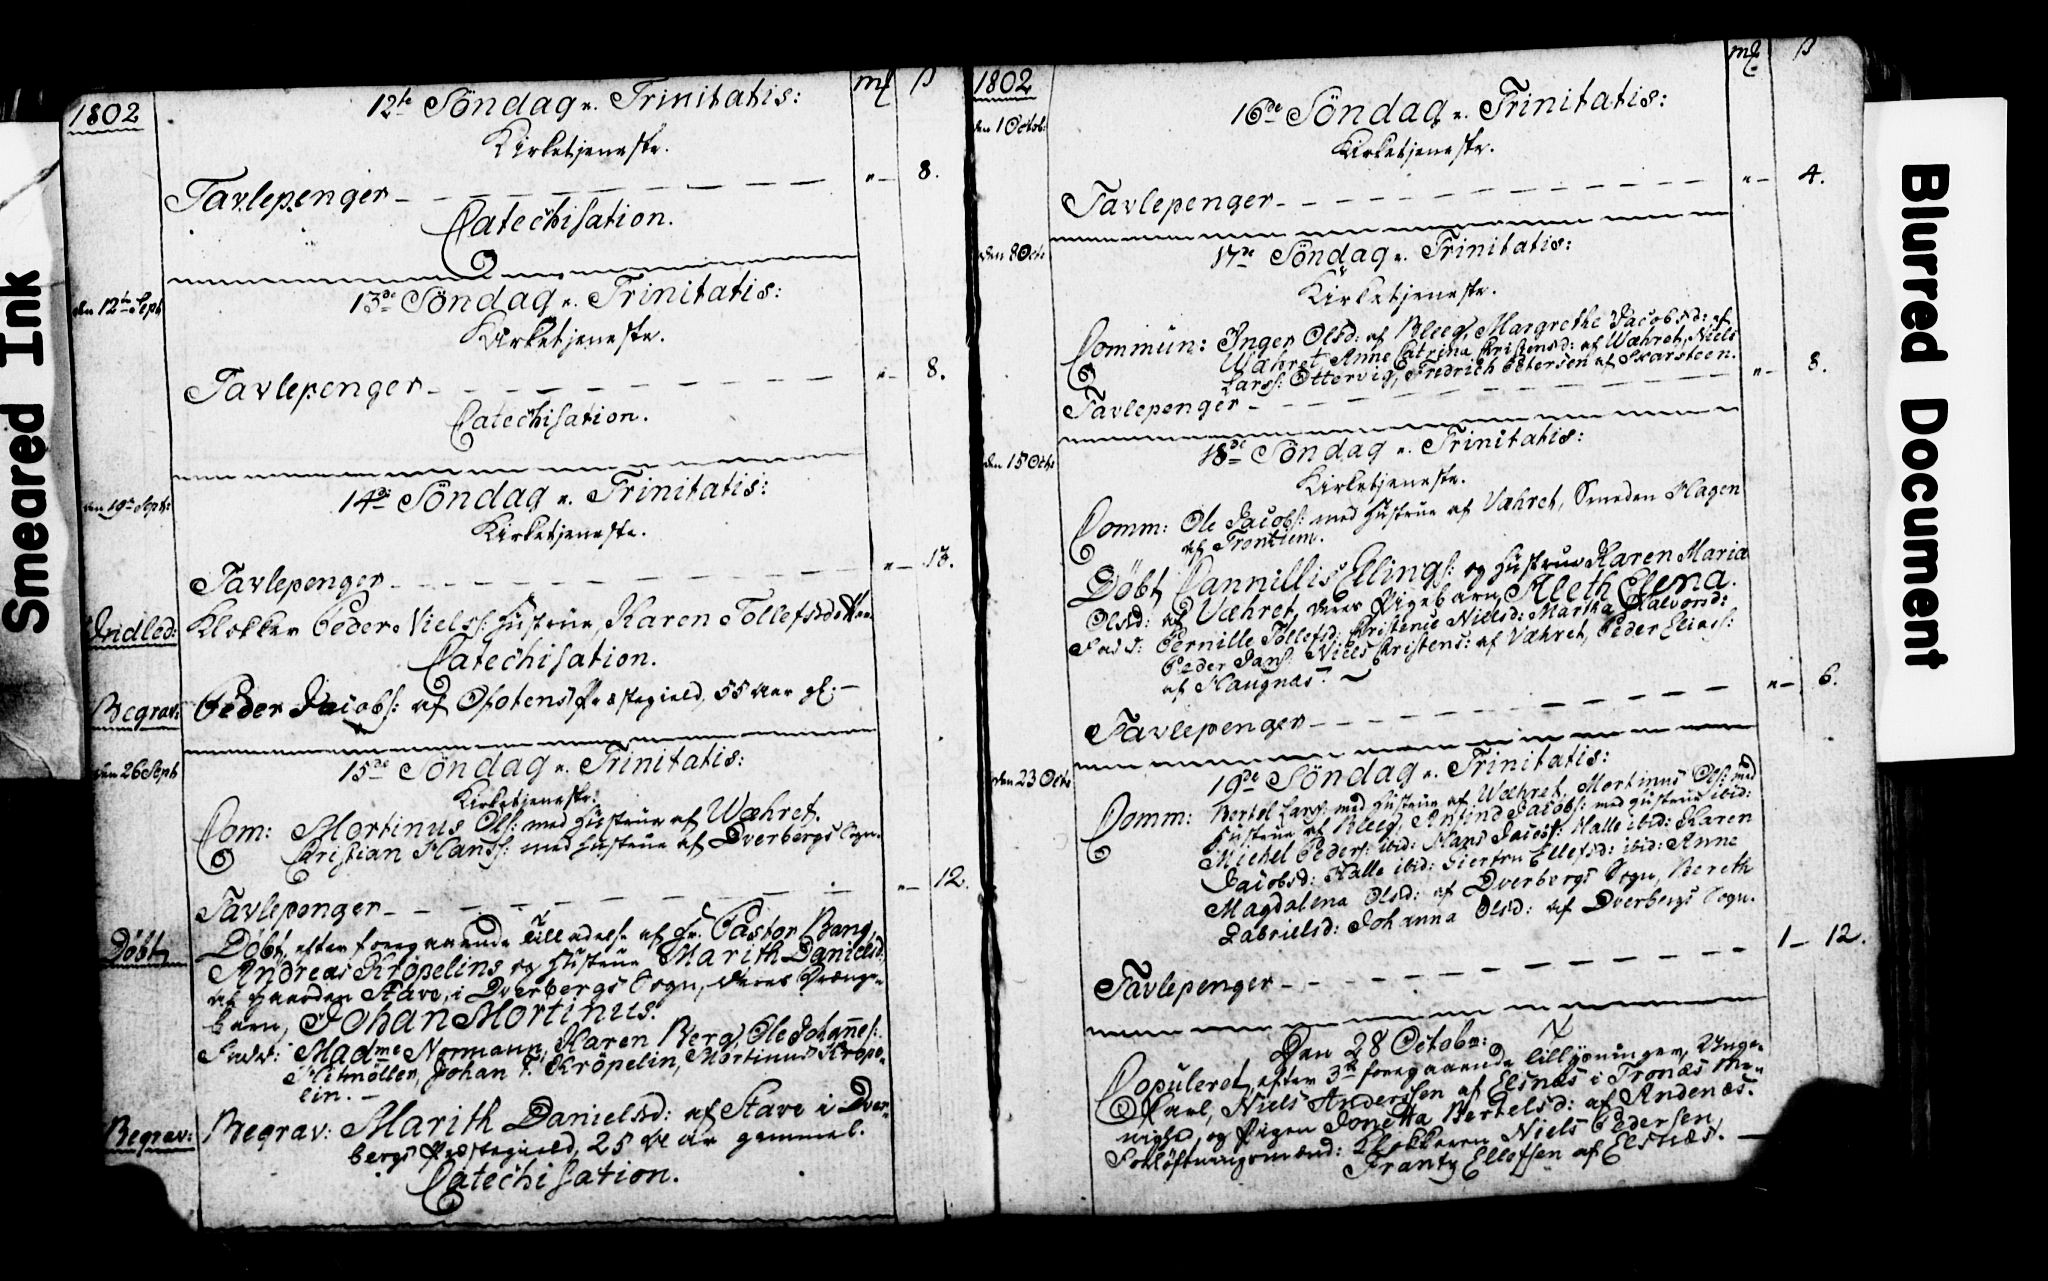 Smeared Ink
1802
12te Söndag e. Trinitatis:
mḱ ß
Kirketjeneste.
Tavlepenger — " — 8.
Catechisation.
den 12te Sept
13de Söndag e. Trinitatis:
Kirketjeneste.
Tavlepenger — " — 8.
Catechisation.
den 19de Sept:
14de Söndag e. Trinitatis:
Kirketjeneste.
Tavlepenger — " — 13.
Indled: Klokker Peder Niels: Hustrue, Karen Tollefsd:
Catechisation.
Begrav: Peder Jacobs: af Ofotens Præstegield, 55 Aar gl: —
den 26 Sept
15de Söndag e. Trinitatis:
Kirketjeneste:
Com: Mortinus Ols: med Hustrue af Wæhret.
Christian Hans: med Hustrue af Dverbergs Sogn.
Tavlepenger — " — 12.
Döbt Döbt, efter foregaaende Tilladelse af Hr. Pastor Bang,
Andreas Kröpelins og Hustrue Marith Danielsd:
af Gaarden Stave, i Dverbergs Sogn, deres Drænge-
barn, Johan Mortinus.
Fadd: Madme Normann, Karen Berg, Ole Johannes:
Flitmöller, Johan F. Kröpelin, Mortinus Kröpe-
lin. —
Begrav: Begrav: Marith Danielsd: af Stave i Dver-
bergs Præstegield, 25 Aar gammel.
Catechisation.
1802
mḱ. ß
den 1 Octob:
16de Söndag e. Trinitatis:
Kirketjeneste.
Tavlepenger — " — 4.
den 8 Oct:
17de Söndag e. Trinitatis:
Kirketjeneste.
Commün: Inger Olsd: af Bleeg, Margrethe Jacobsd: af
Wæhret, Anne Catrina Cristensd: af Wæhret, Niels
Lars: Ottervig, Fredrich Petersen af Skarsteen.
Tavlepenger — " — 8.
den 15 Octr
18de Söndag e. Trinitatis:
Kirketjeneste.
Comm: Ole Jacobs: med Hustrue af Væhret, Smeden Hagen
af Trontiem.
Döbt Cannillis Ellings: og Hustrue Karen Maria
Olsd: af Væhret, deres Pigebarn Aleth Elena.
Fadd: Pernille Tollefsd: Cristenie Nielsd: Martha Halvorsd:
Peder Jans: Niels Cristens: af Væhret, Peder Elias:
af Haugnæs. —
Tavlepenger — " — 6.
den 23 Octr
19de Söndag e. Trinitatis:
Comm: Bertel Lars: med Hustrue af Wæhret, Mortinus Ols: med
Hustrue af Bleeg, Anfind Jacobs: med Hustrue ibid:
Michel Peders: ibid: Hans Jacobs: Halle ibid: Karen
Jacobsd: Halle ibid: Giertru Ellefsd: ibid: Anne
Magdalena Olsd: af Dverbergs Sogn, Bereth
Gabrielsd: Johanna Olsd: af Dverbergs Sogn.
Tavlepenger — 1 — 12.
Den 28 Octobr:
Copuleret, efter 3de foregaaende Tillysninger, Unge-
Karl, Niels Anderssen af Elsnæs i Tronæs Me-
nighed, og Pigen Jonetta Bertelsd: af Andenæs.
Forlöftningsmænd: Klokkeren Niels Pedersen
Frantz Ellefsen af Elsnæs. —
Blurred Document